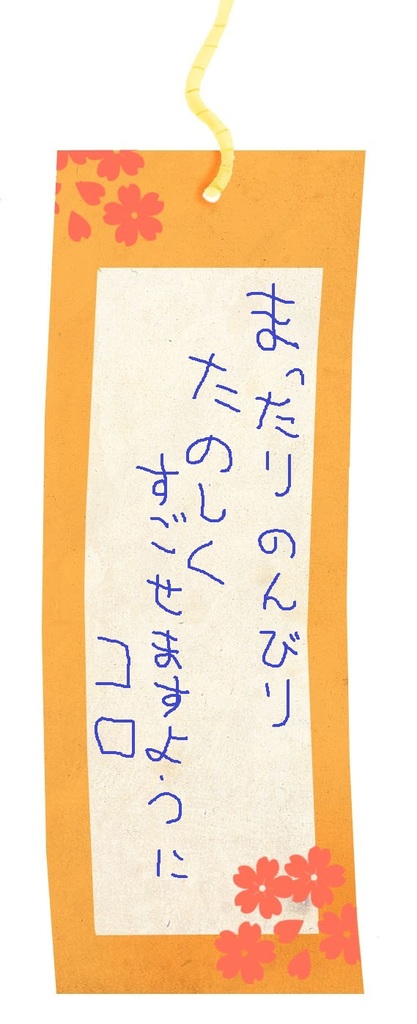 まったり のんびり
たのしく
すごせますように
コロ